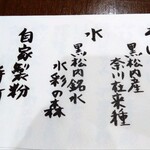 黒松内産
奈川在来種
水
黒松内銘水
水彩の森
自家製粉